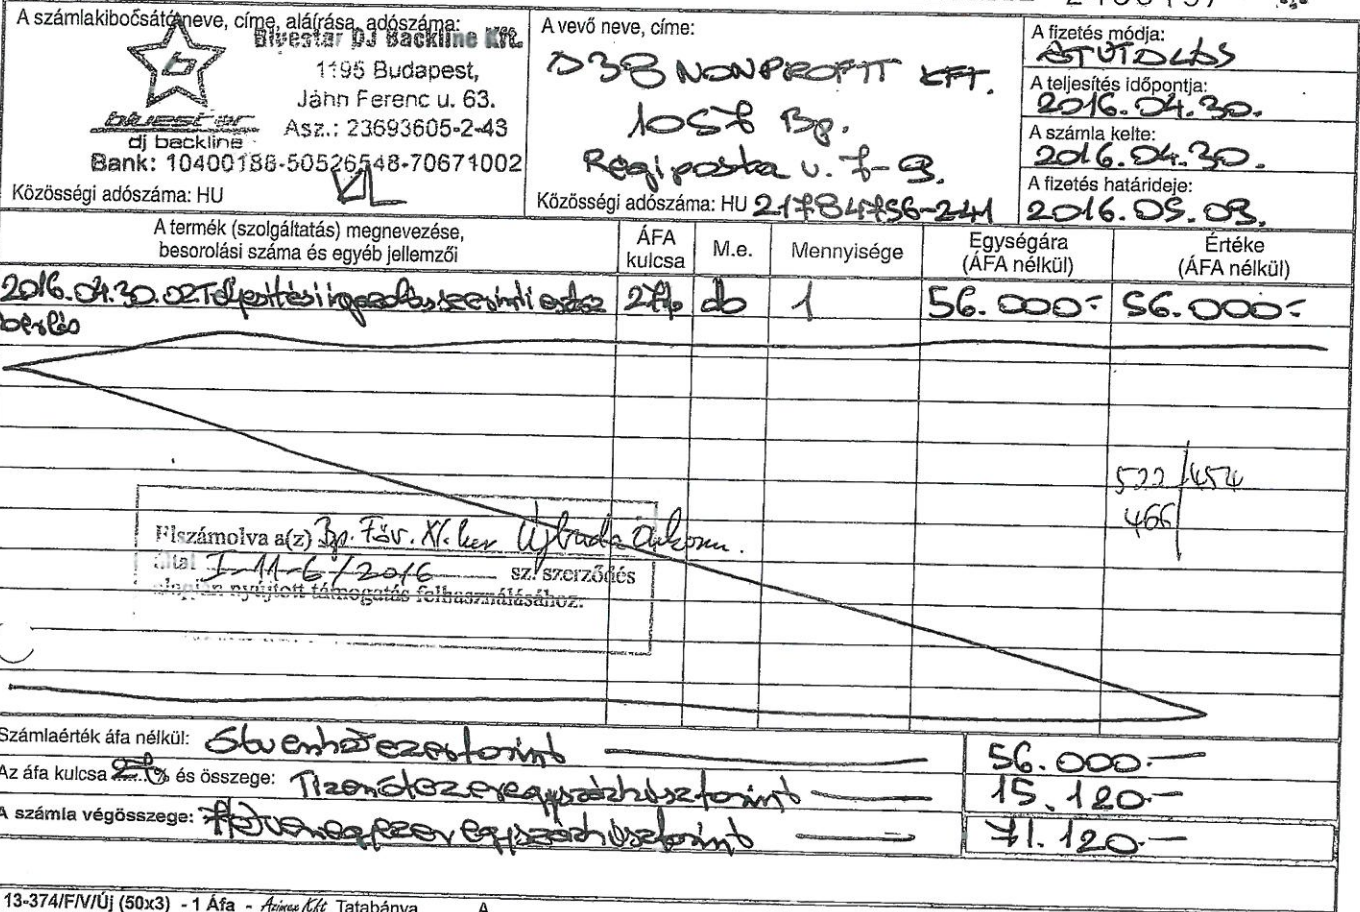 A számlakibocsátó neve, címe, aláírása, adószáma:
Bluestar DJ Backline Kft.
1195 Budapest,
Jahn Ferenc u. 63.
Asz.: 23693605-2-43
b
bluestar
dj backline
Bank: 10400188-50526548-70671002
Közösségi adószáma: HU
A vevő neve, címe:
D3B NONPROFIT KFT.
1052 Bp.
Régiposta u. 7-9.
Közösségi adószáma: HU 21784756-241
A fizetés módja:
ÁTUTALÁS
A teljesítés időpontja:
2016.04.30.
A számla kelte:
2016.04.30.
A fizetés határideje:
2016.05.09.
A termék (szolgáltatás) megnevezése, besorolási száma és egyéb jellemzői
ÁFA kulcsa
M.e.
Mennyisége
Egységára (ÁFA nélkül)
Értéke (ÁFA nélkül)
2016.04.30. Teljesítési igazolás szerinti eszköz 27% db 1 56.000.- 56.000.-
bérlés
522 / 454
466
Elszámolva a(z) Bp. Főv. XI. ker Újbuda Önkorm.
által I-11-6/2016 sz. szerződés
alapján nyújtott támogatás felhasználásához.
Számlaérték áfa nélkül: Ötvenhatezerforint 56.000.-
Az áfa kulcsa 27% és összege: Tizenötezeregyszázhúszforint 15.120.-
A számla végösszege: Hetvenegyezeregyszázhúszforint 71.120.-
13-374/F/V/Új (50x3) - 1 Áfa - Kft Tatabánya